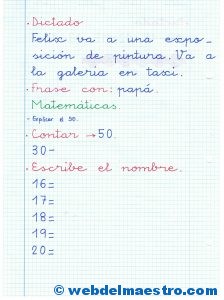 · Dictado
Felix va a una expo-
sición de pintura. Va a
la galeria en taxi.
· Frase con: papá.
Matemáticas
- Explicar el 50.
· Contar → 50.
30-
· Escribe el nombre.
16=
17=
18=
19=
20=
© webdelmaestro.com